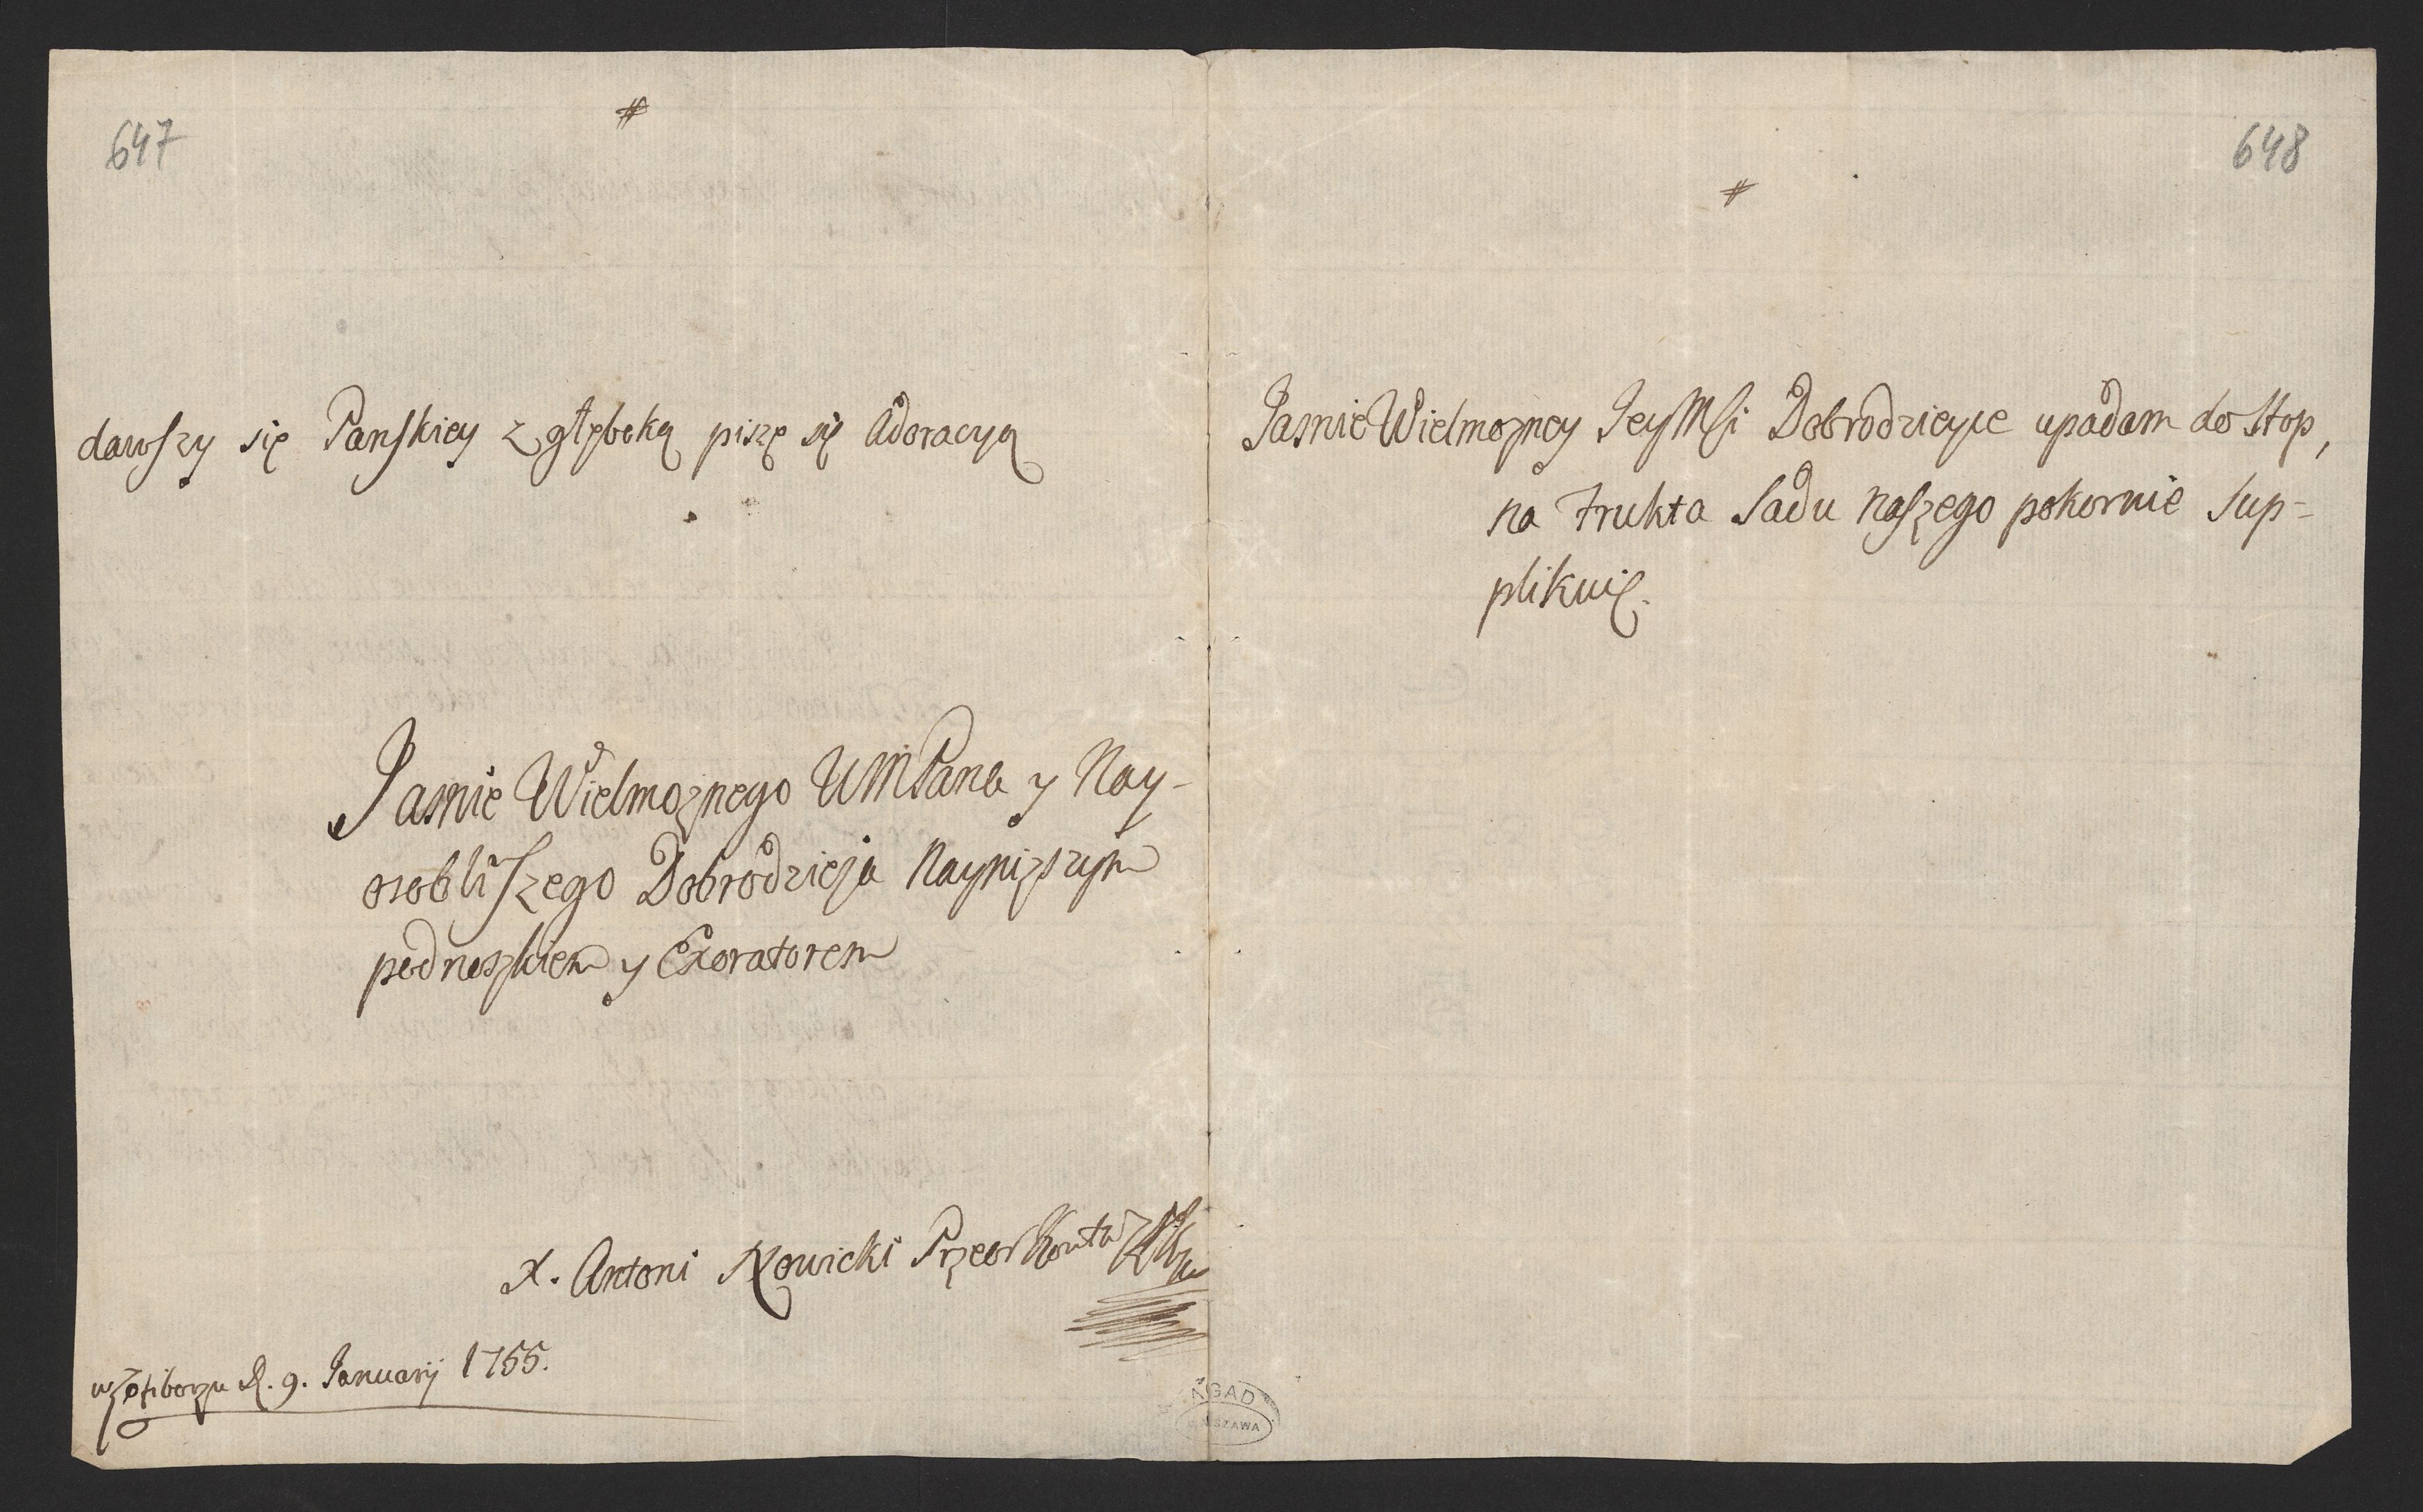 647
#
dawszy się Panskiey z głęboką piszę się Adoracyą
Jasnie Wielmoznego WMPana y Nay-
osobliszego Dobrodzieja Nayniższym
podnoszkiem y Exoratorem
X. Antoni Nowicki Przeor
d. 9. Januarij 1755.
648
#
Jasnie Wielmozney JeyMSi Dobrodzieyce upadam do Stop,
na Frukta Sadu naszego pokornie sup=
plikuię.
AGAD
WARSZAWA